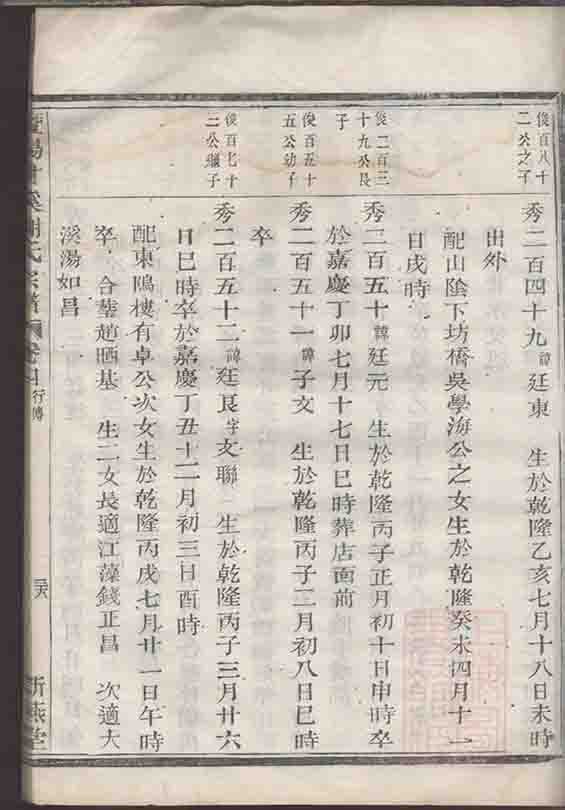 俊百八十
二公之子
秀二百四十九諱廷東 生於乾隆乙亥七月十八日未時
出外
配山陰下坊橋吳學海公之女生於乾隆癸未四月十一
日戌時
俊二百三
十九公長
子
秀二百五十諱廷元 生於乾隆丙子正月初十日申時卒
於嘉慶丁卯七月十七日巳時葬店面前
俊百五十
五公幼子
秀二百五十一諱子文 生於乾隆丙子二月初八日巳時
卒
俊百七十
二公繼子
秀二百五十二諱廷艮字文聯 生於乾隆丙子三月廿六
日巳時卒於嘉慶丁丑十二月初三日酉時
配東隝樓有卓公次女生於乾隆丙戌七月廿一日午時
卒 合塟趙晒基 生二女長適江藻錢正昌 次適大
溪湯如昌
氏宗譜 卷四 行傳